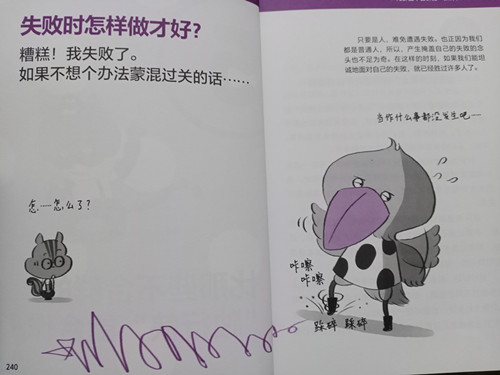 失败时怎样做才好?
糟糕！我失败了。
如果不想个办法蒙混过关的话……
怎一怎么了?
240
只要是人，难免遭遇失败。也正因为我们
都是普通人，所以，产生掩盖自己的失败的念
头也不足为奇。在这样的时刻，如果我们能坦
诚地面对自己的失败，就已经胜过许多人了。
当作什么事都没发生吧一
咔嚓
咔嚓
跺碎 跺碎